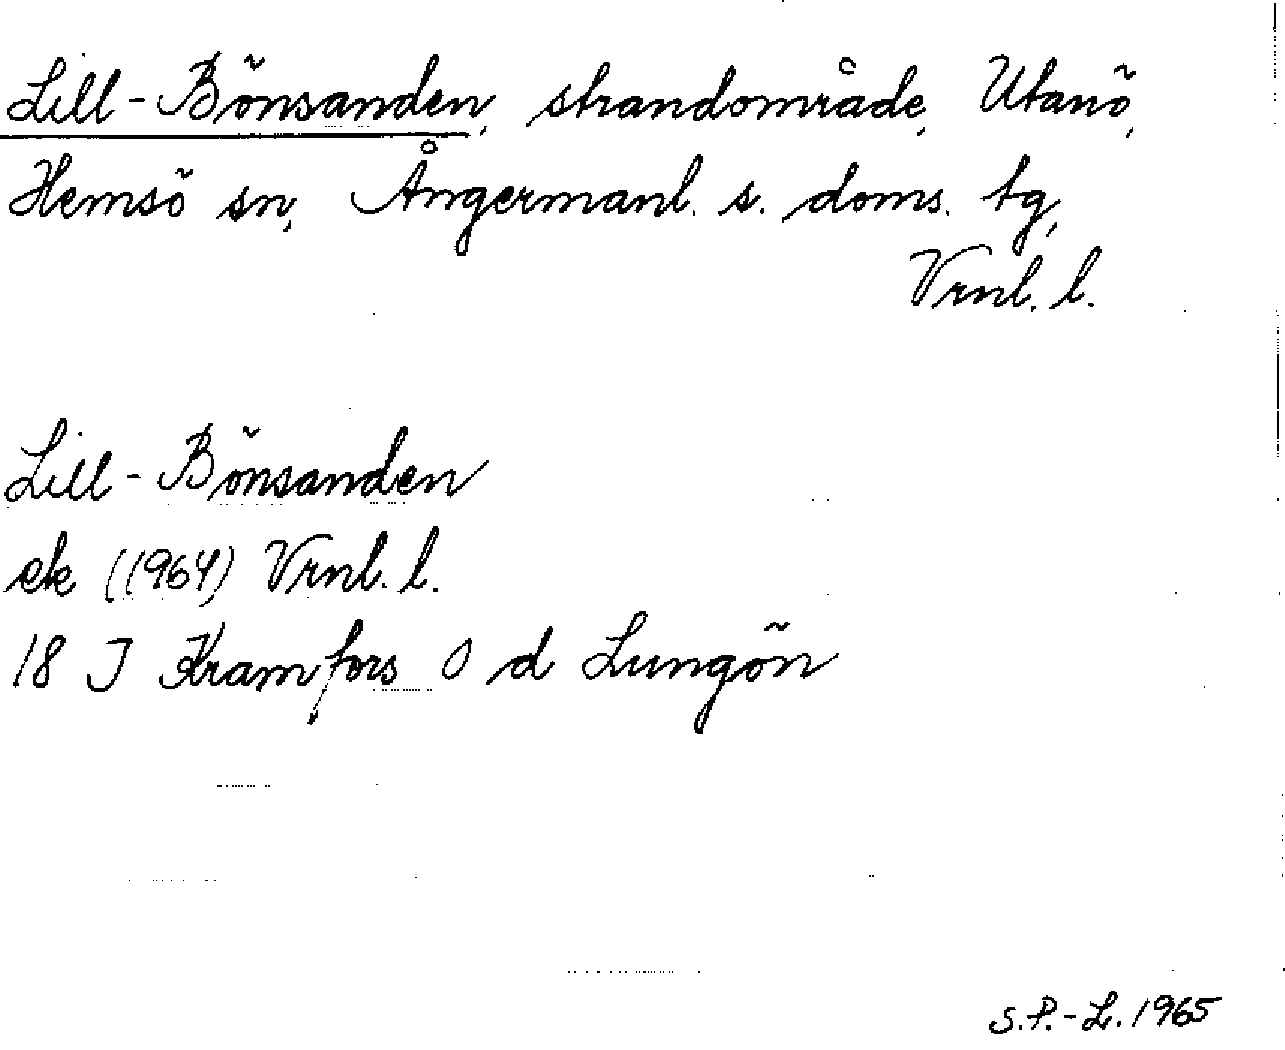 Lill-Bönsanden, strandområde, Utanö,
Hemsö sn, Ångermanl. s. doms. tg,
Vrnl. l.
Lill-Bönsanden
ek (1964) Vrnl. l.
18 J Kramfors O d Lungön
S.P.-L. 1965